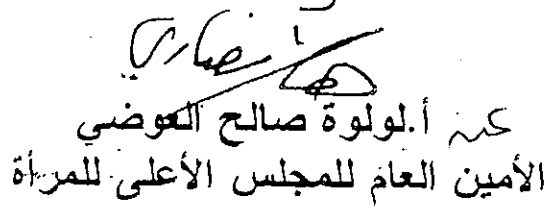 عن أ.لولوة صالح العوضي
الأمين العام للمجلس الأعلى للمرأة